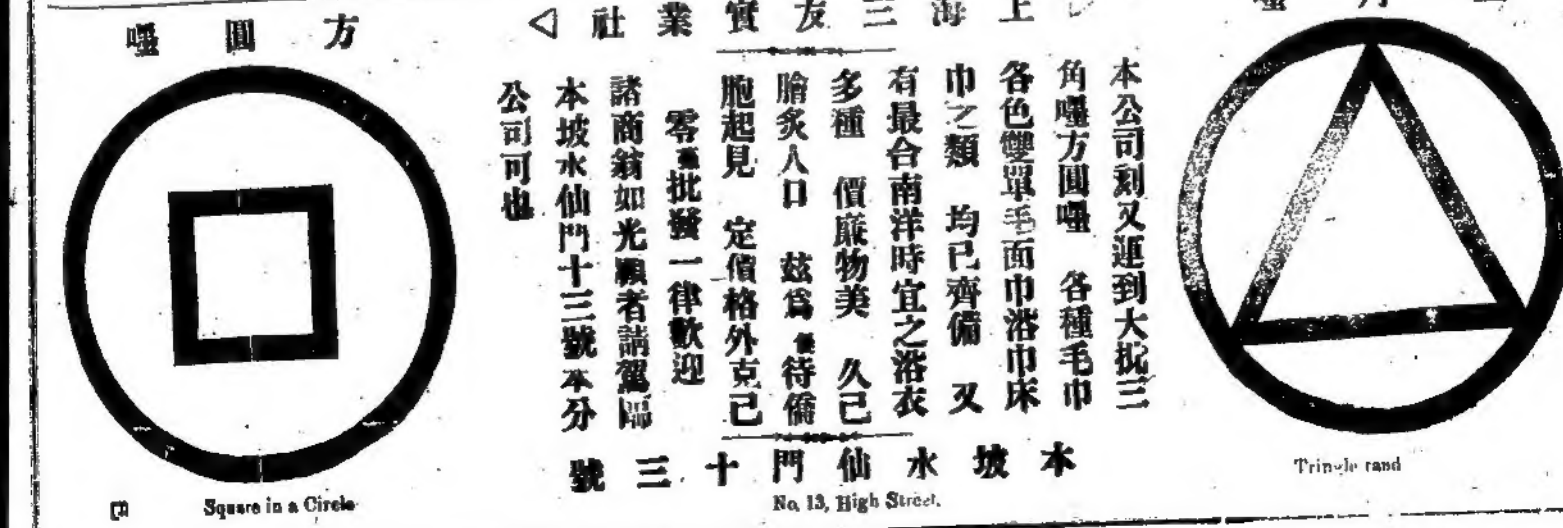 上海三友實業社
本公司刻又運到大批三
角嘜方圓嘜 各種毛巾
各色雙單毛面巾浴巾床
巾之類 均已齊備 又
有最合南洋時宜之浴衣
多種 價廉物美 久已
膾炙人口 茲爲優待僑
胞起見 定價格外克己
零躉批發一律歡迎
諸商翁如光顧者請駕臨
本坡水仙門十三號本分
公司可也
本坡水仙門十三號
No. 13, High Street.
方圓嘜
Square in a Circle